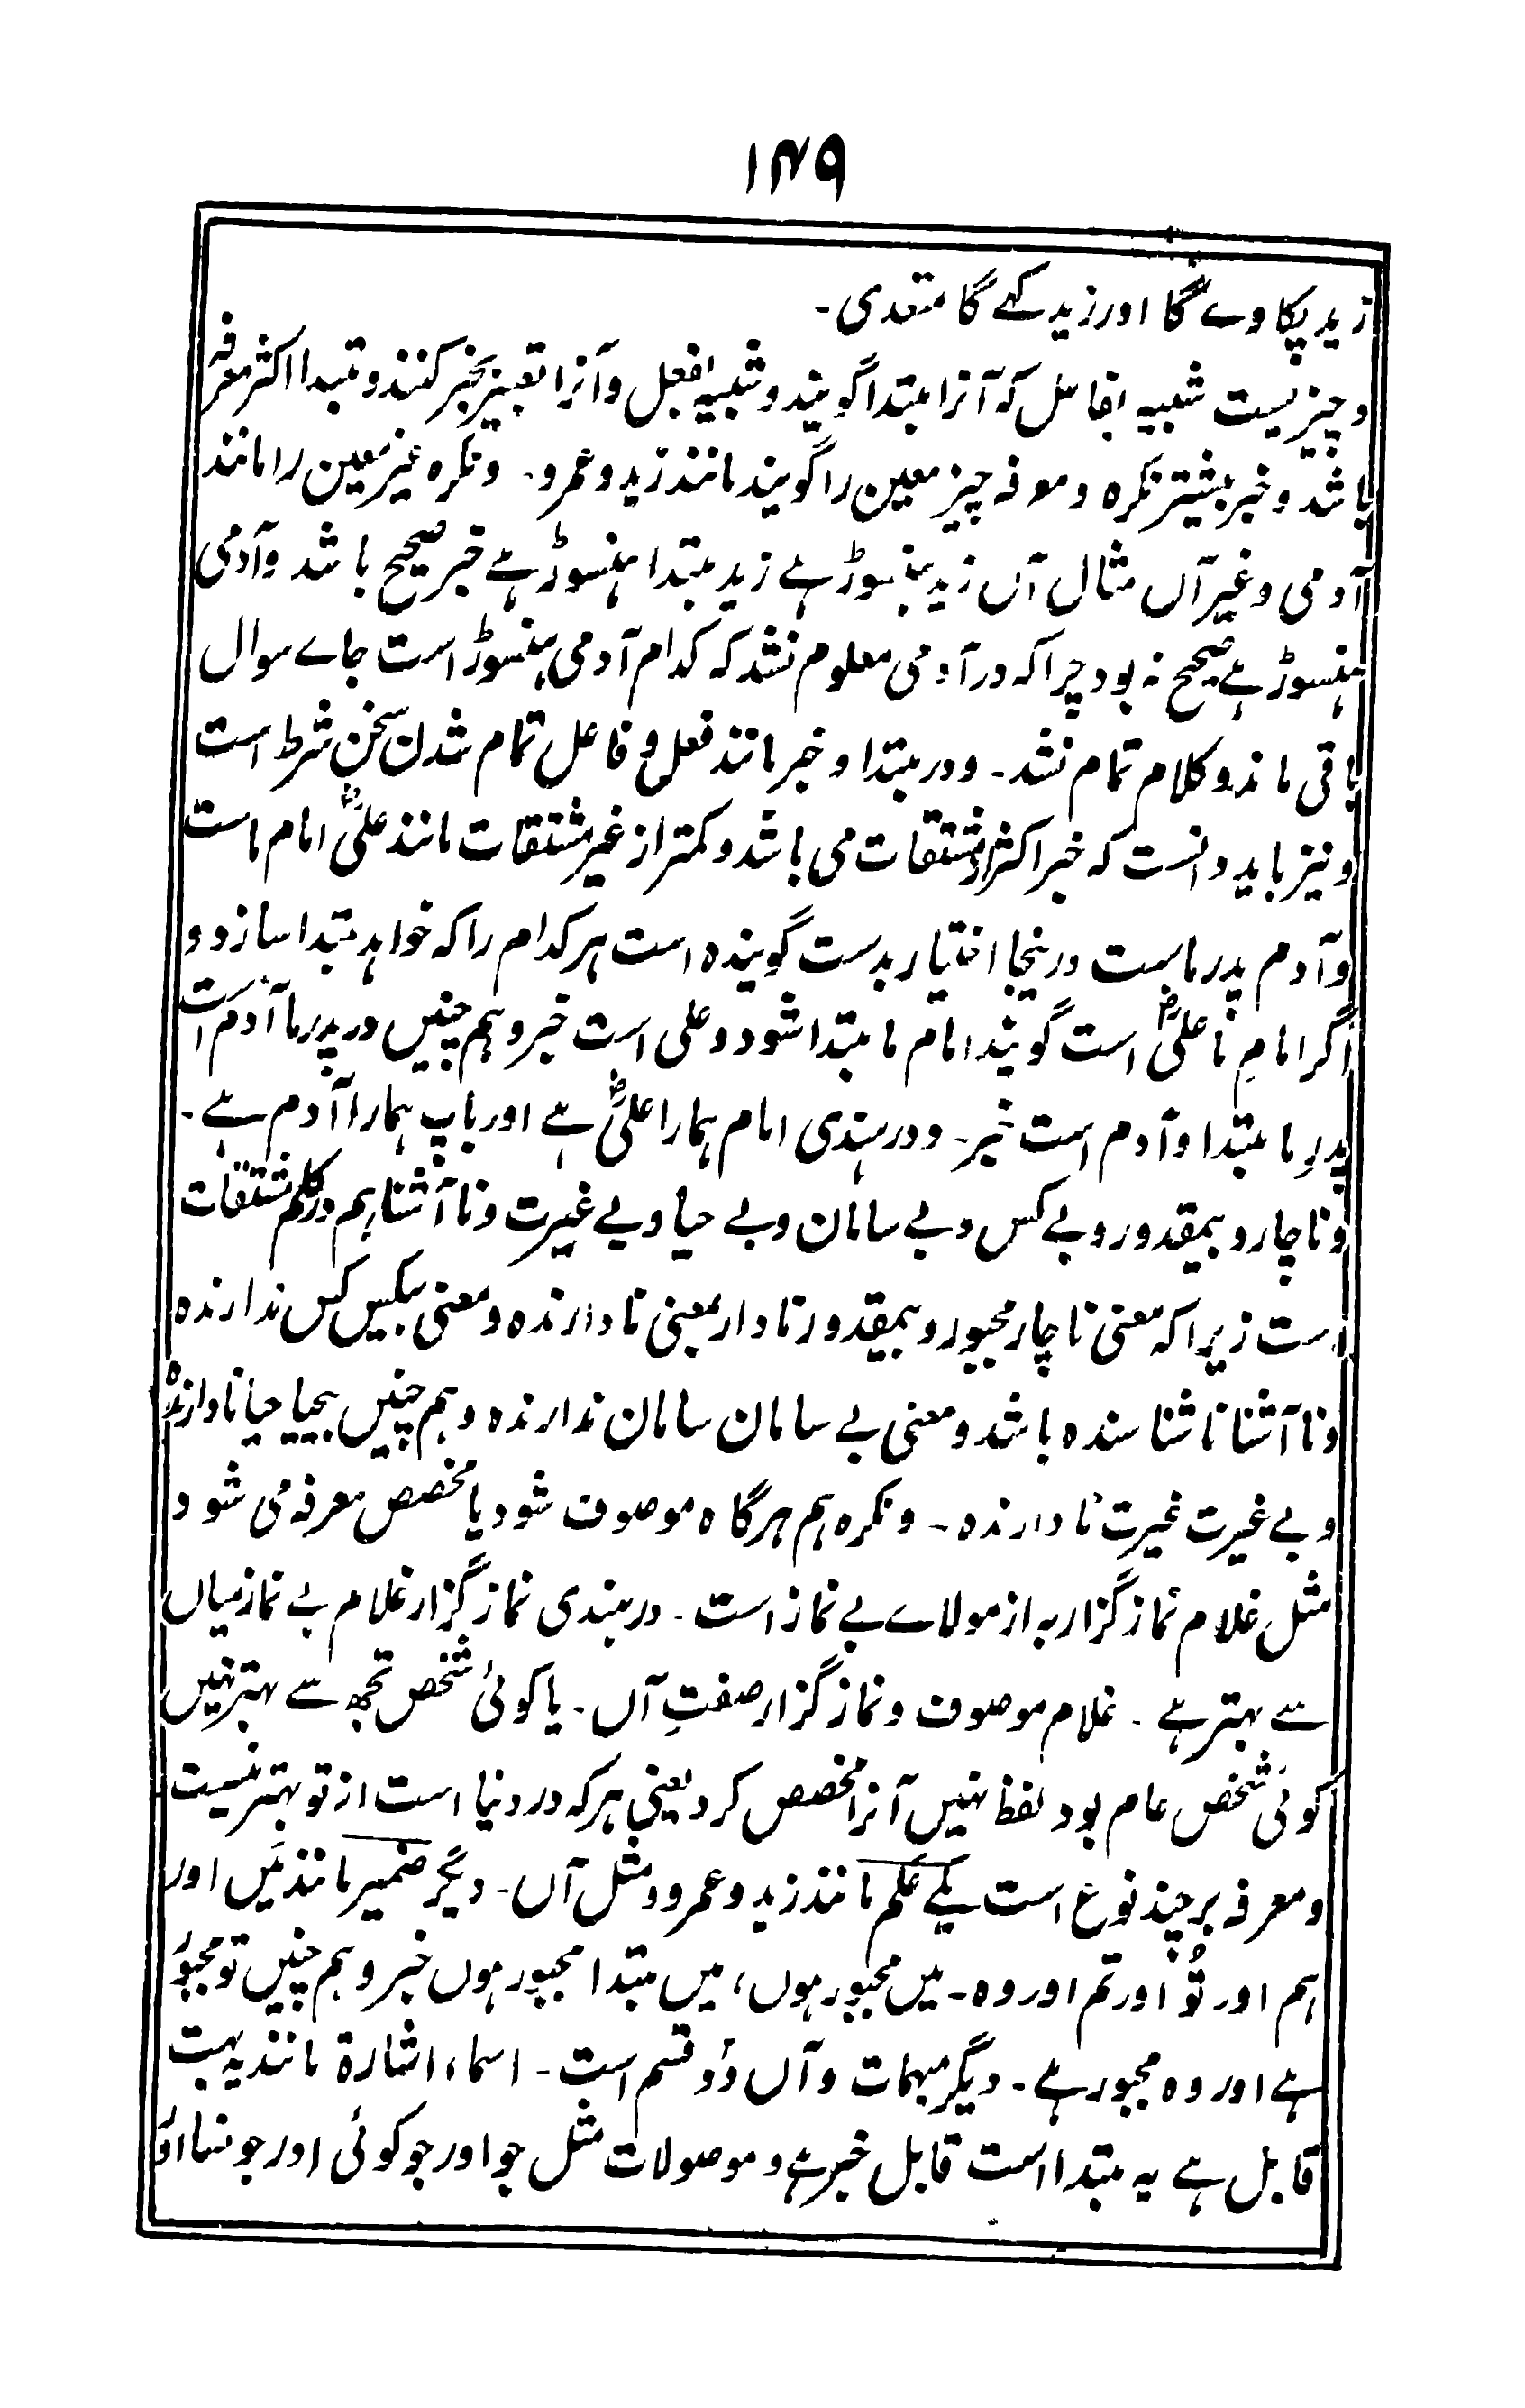 ۱۴۹
زید پکاوے گا اور زید کہے گا متعدی۔
و چیزیست شبیہ بفاعل کہ آنرا مبتدا گویند و شبیہ بفعل و آنرا تعبیر بخبر کنند و مبتدا اکثر معرفہ
باشد و خبر بیشتر نکرہ و معرفہ چیز معین را گویند مانند زید و عمرو۔ و نکرہ غیر معین را مانند
آدمی و غیر آں مثال آں زید ہنسوڑ ہے زید مبتدا ہنسوڑ ہے خبر صحیح باشد و آدمی
ہنسوڑ ہے صحیح نہ بود چرا کہ در آدمی معلوم نشد کہ کدام آدمی ہنسوڑ است جاے سوال
باقی ماند و کلام تمام نشد۔ و در مبتدا و خبر مانند فعل و فاعل تمام شدن سخن شرط است
و نیز باید دانست کہ خبر اکثر از مشتقات می باشد و کمتر از غیر مشتقات مانند علیؓ امام ماست
و آدم پدر ماست درینجا اختیار بدست گویندہ است ہر کدام را کہ خواہد مبتدا سازد و
اگر امامِ ما علیؓ است گویند امام ما مبتدا شود و علی است خبر و ہم چنیں در پدر ما آدم است
پدرِ ما مبتدا و آدم است خبر۔ و در ہندی امام ہمارا علیؓ ہے اور باپ ہمارا آدم ہے۔
و ناچار و بیمقدور و بے کس و بے سامان و بے حیا و بے غیرت و نا آشنا ہم در حکم مشتقات
است زیرا کہ معنی ناچار مجبور و بیمقدور نادار بمعنی نادارندہ و معنی بیکس کس ندارندہ
و نا آشنا ناشناسندہ باشد و معنی بے سامان سامان ندارندہ و ہم چنیں بیحیا حیا نادارندہ
و بے غیرت غیرت نادارندہ۔ و نکرہ ہم ہرگاہ موصوف شود یا مخصص معرفہ می شود
مثل غلام نماز گزار بہ از مولاے بے نماز است۔ در ہندی نماز گزار غلام بے نماز میاں
سے بہتر ہے۔ غلام موصوف و نماز گزار صفتِ آں۔ یا کوئی شخص تجھ سے بہتر نہیں
کوئی شخص عام بود لفظ نہیں آنرا مخصص کرد یعنی ہر کہ در دنیا است از تو بہتر نیست
و معرفہ بر چند نوع است یکے عَلَم مانند زید و عمرو و مثل آں۔ دیگر ضمیر مانند مَیں اور
ہم اور تُو اور تم اور وہ۔ میں مجبور ہوں، میں مبتدا مجبور ہوں خبر و ہم چنیں تو مجبور
ہے اور وہ مجبور ہے۔ دیگر مبہمات و آں دو قسم است۔ اسماء اشارۃ مانند یہ بہت
قابل ہے یہ مبتدا است قابل خبر ہے و موصولات مثل جو اور جو کوئی اور جونسا اور